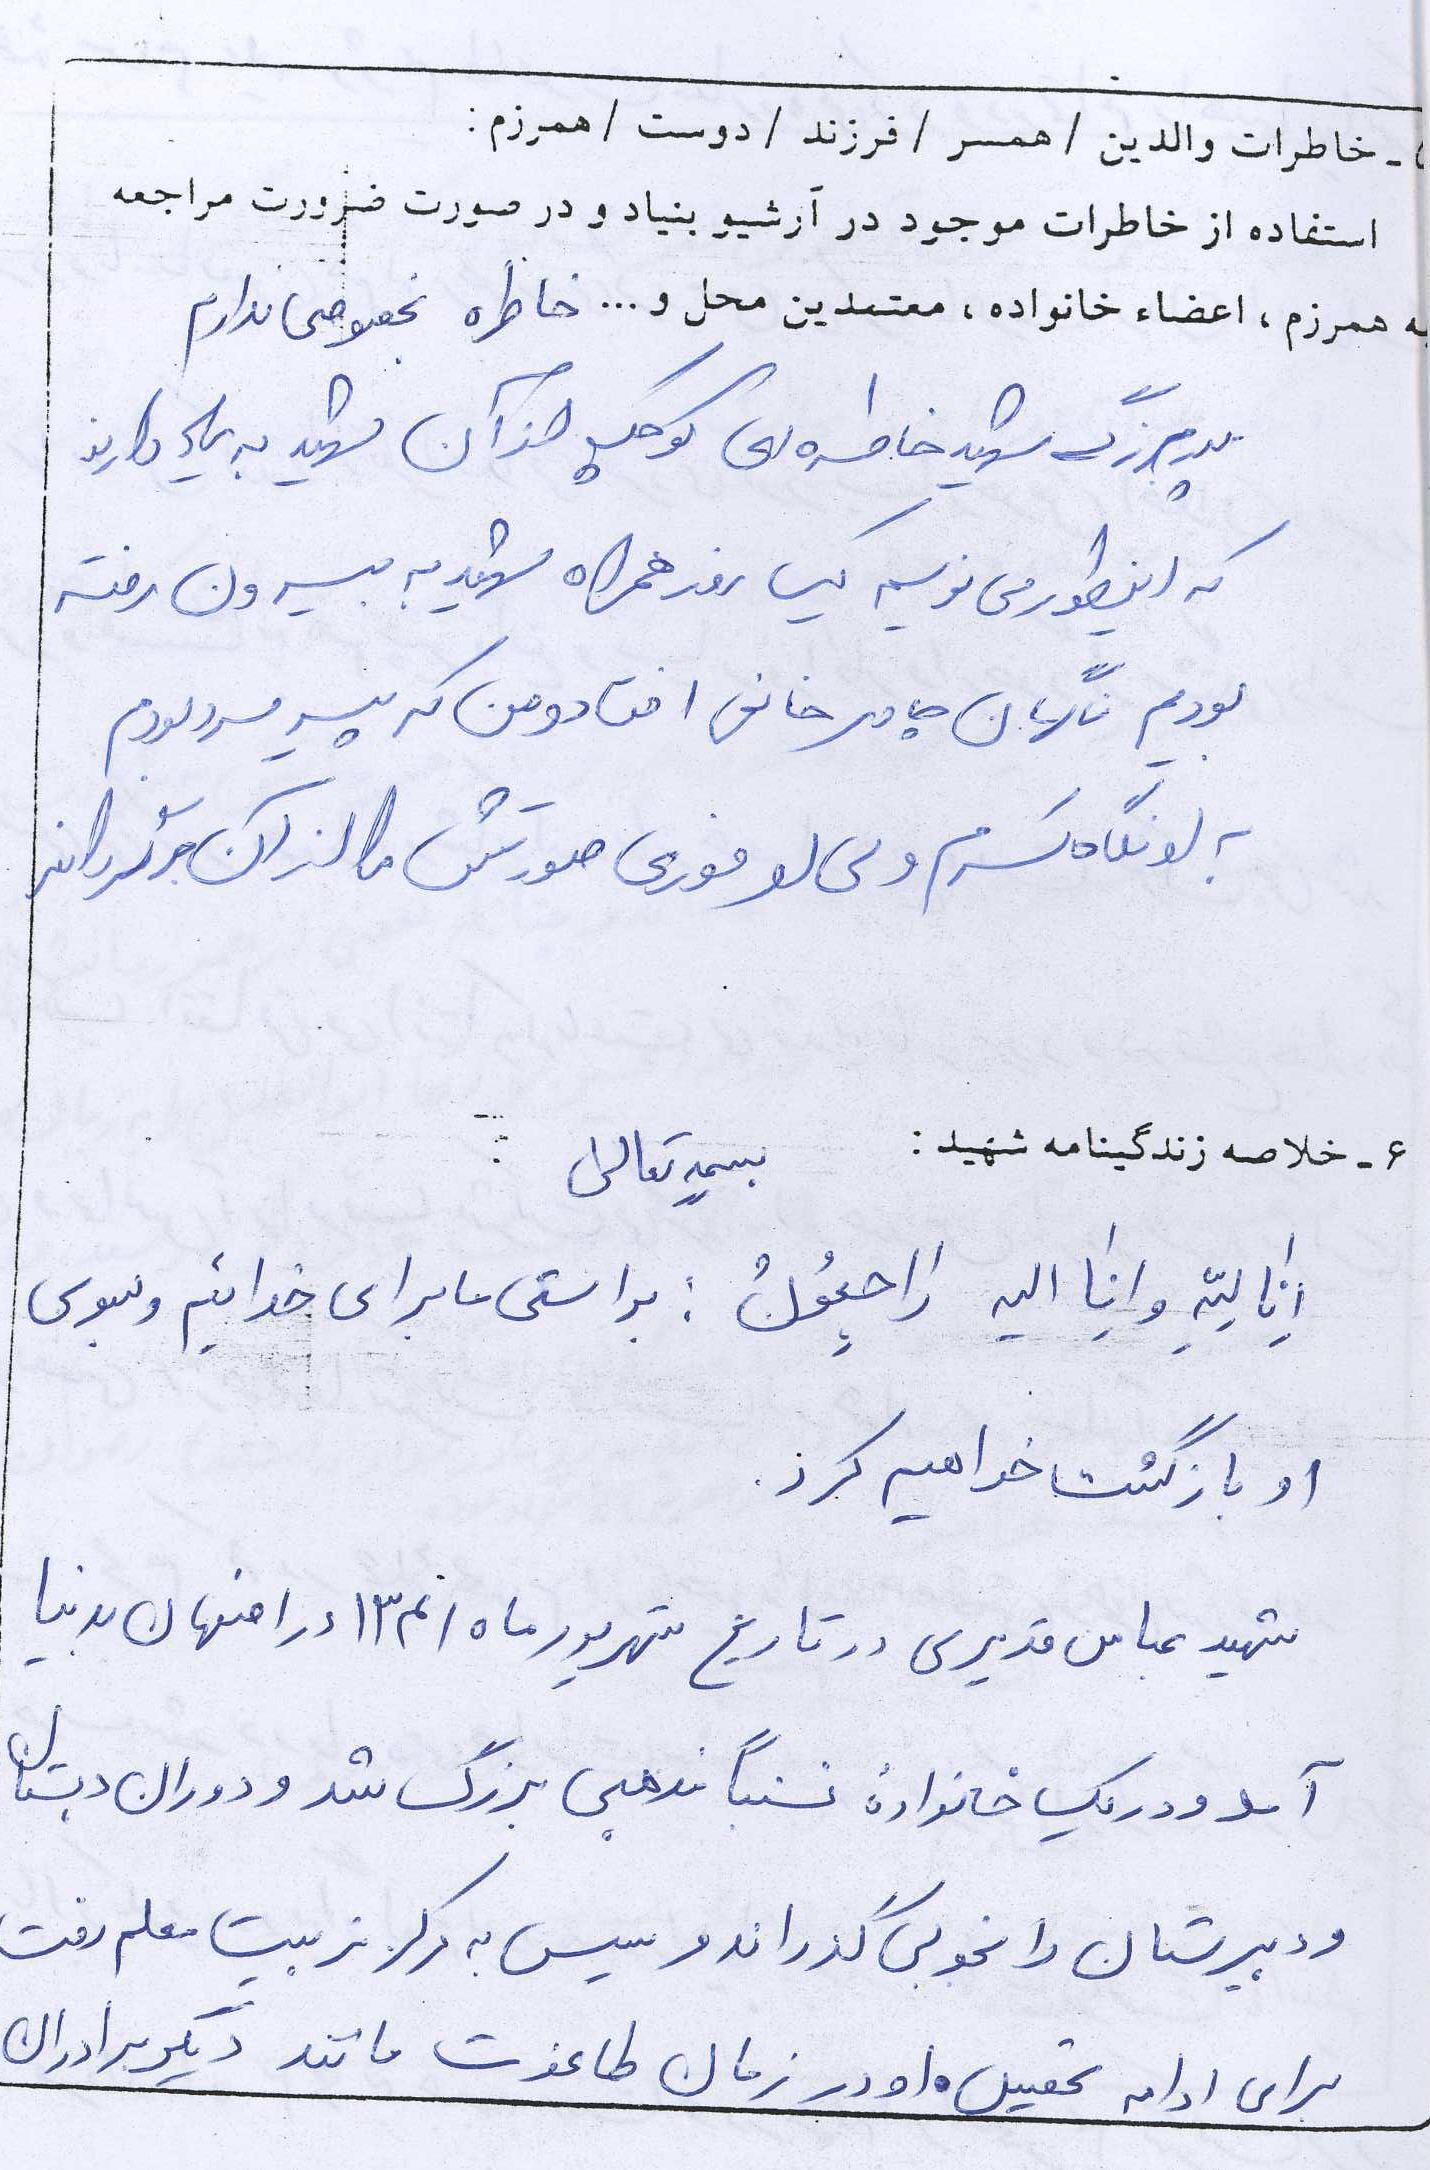 ۵ - خاطرات والدین / همسر / فرزند / دوست / همرزم :
استفاده از خاطرات موجود در آرشیو بنیاد و در صورت ضرورت مراجعه
به همرزم ، اعضاء خانواده ، معتمدین محل و ... خاطره بخصوصی ندارم
پدربزرگ شهید خاطره‌ای کوچک از آن شهید به یاد دارند
که اینطور می نویسیم یک روز همراه شهید به بیرون رفته
بودیم ناگهان چادر خانمی افتاد و من که پیرمرد بودم
به او نگاه کردم ولی او فوری صورتش را از آن برگرداند
۶ - خلاصه زندگینامه شهید : بسمه تعالی
اِنّا لِلّهِ وَ اِنّا الیه راجِعُونْ : براستی ما برای خدائیم و بسوی
او بازگشت خواهیم کرد .
شهید عباس قدیری در تاریخ شهریور ماه ۱۳۴۱ در اصفهان بدنیا
آمد و در یک خانوادهٔ نسبتاً مذهبی بزرگ شد و دوران دبستان
و دبیرستان را بخوبی گذراند و سپس به مرکز تربیت معلم رفت
برای ادامه تحصیل . او در زمان طاغوت مانند دیگر برادران